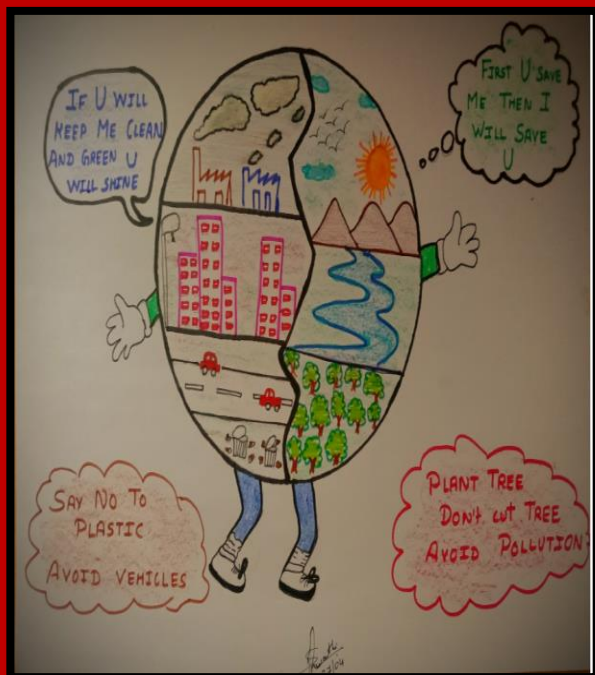 IF U WILL
KEEP ME CLEAN
AND GREEN U
WILL SHINE
FIRST U SAVE
ME THEN I
WILL SAVE
U
SAY NO TO
PLASTIC
AVOID VEHICLES
PLANT TREE
DON'T CUT TREE
AVOID POLLUTION